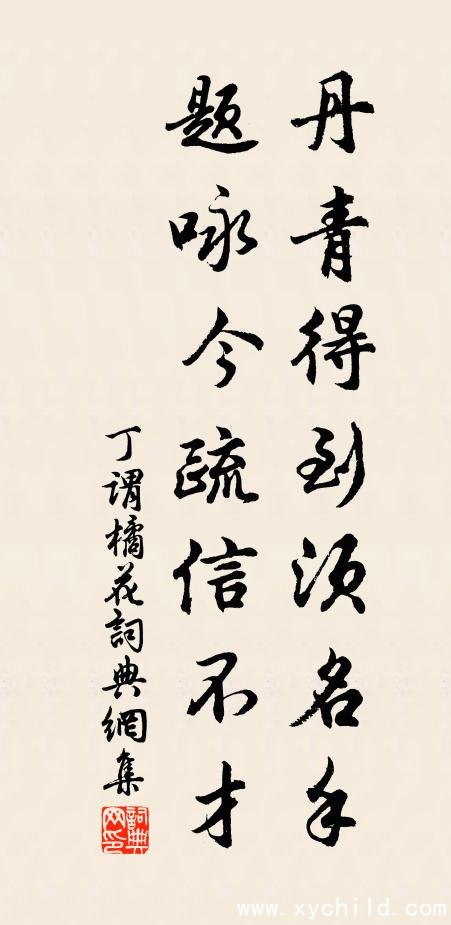 丹青得到须名手
题咏今疏信不才
丁谓橘花詞典網集
詞典网印
www.xychild.com